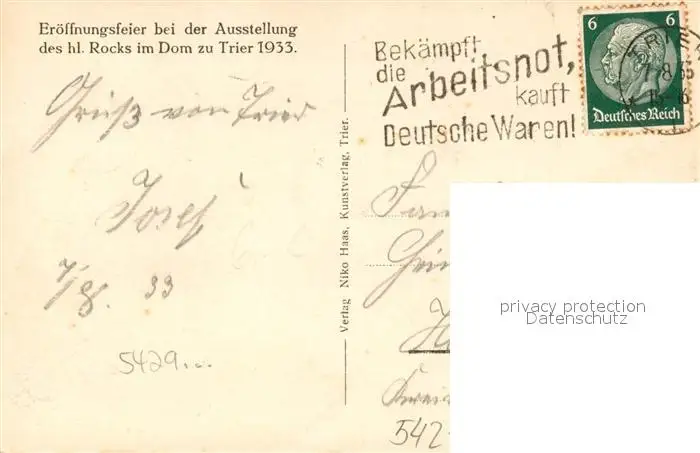 Eröffnungsfeier bei der Ausstellung
des hl. Rocks im Dom zu Trier 1933.
Gruß von Trier
Josef
7/8. 33
5429...
Verlag Niko Haas, Kunstverlag, Trier.
Bekämpft
die
Arbeitsnot,
kauft
Deutsche Waren!
6 6
Deutsches Reich
privacy protection
Datenschutz
542